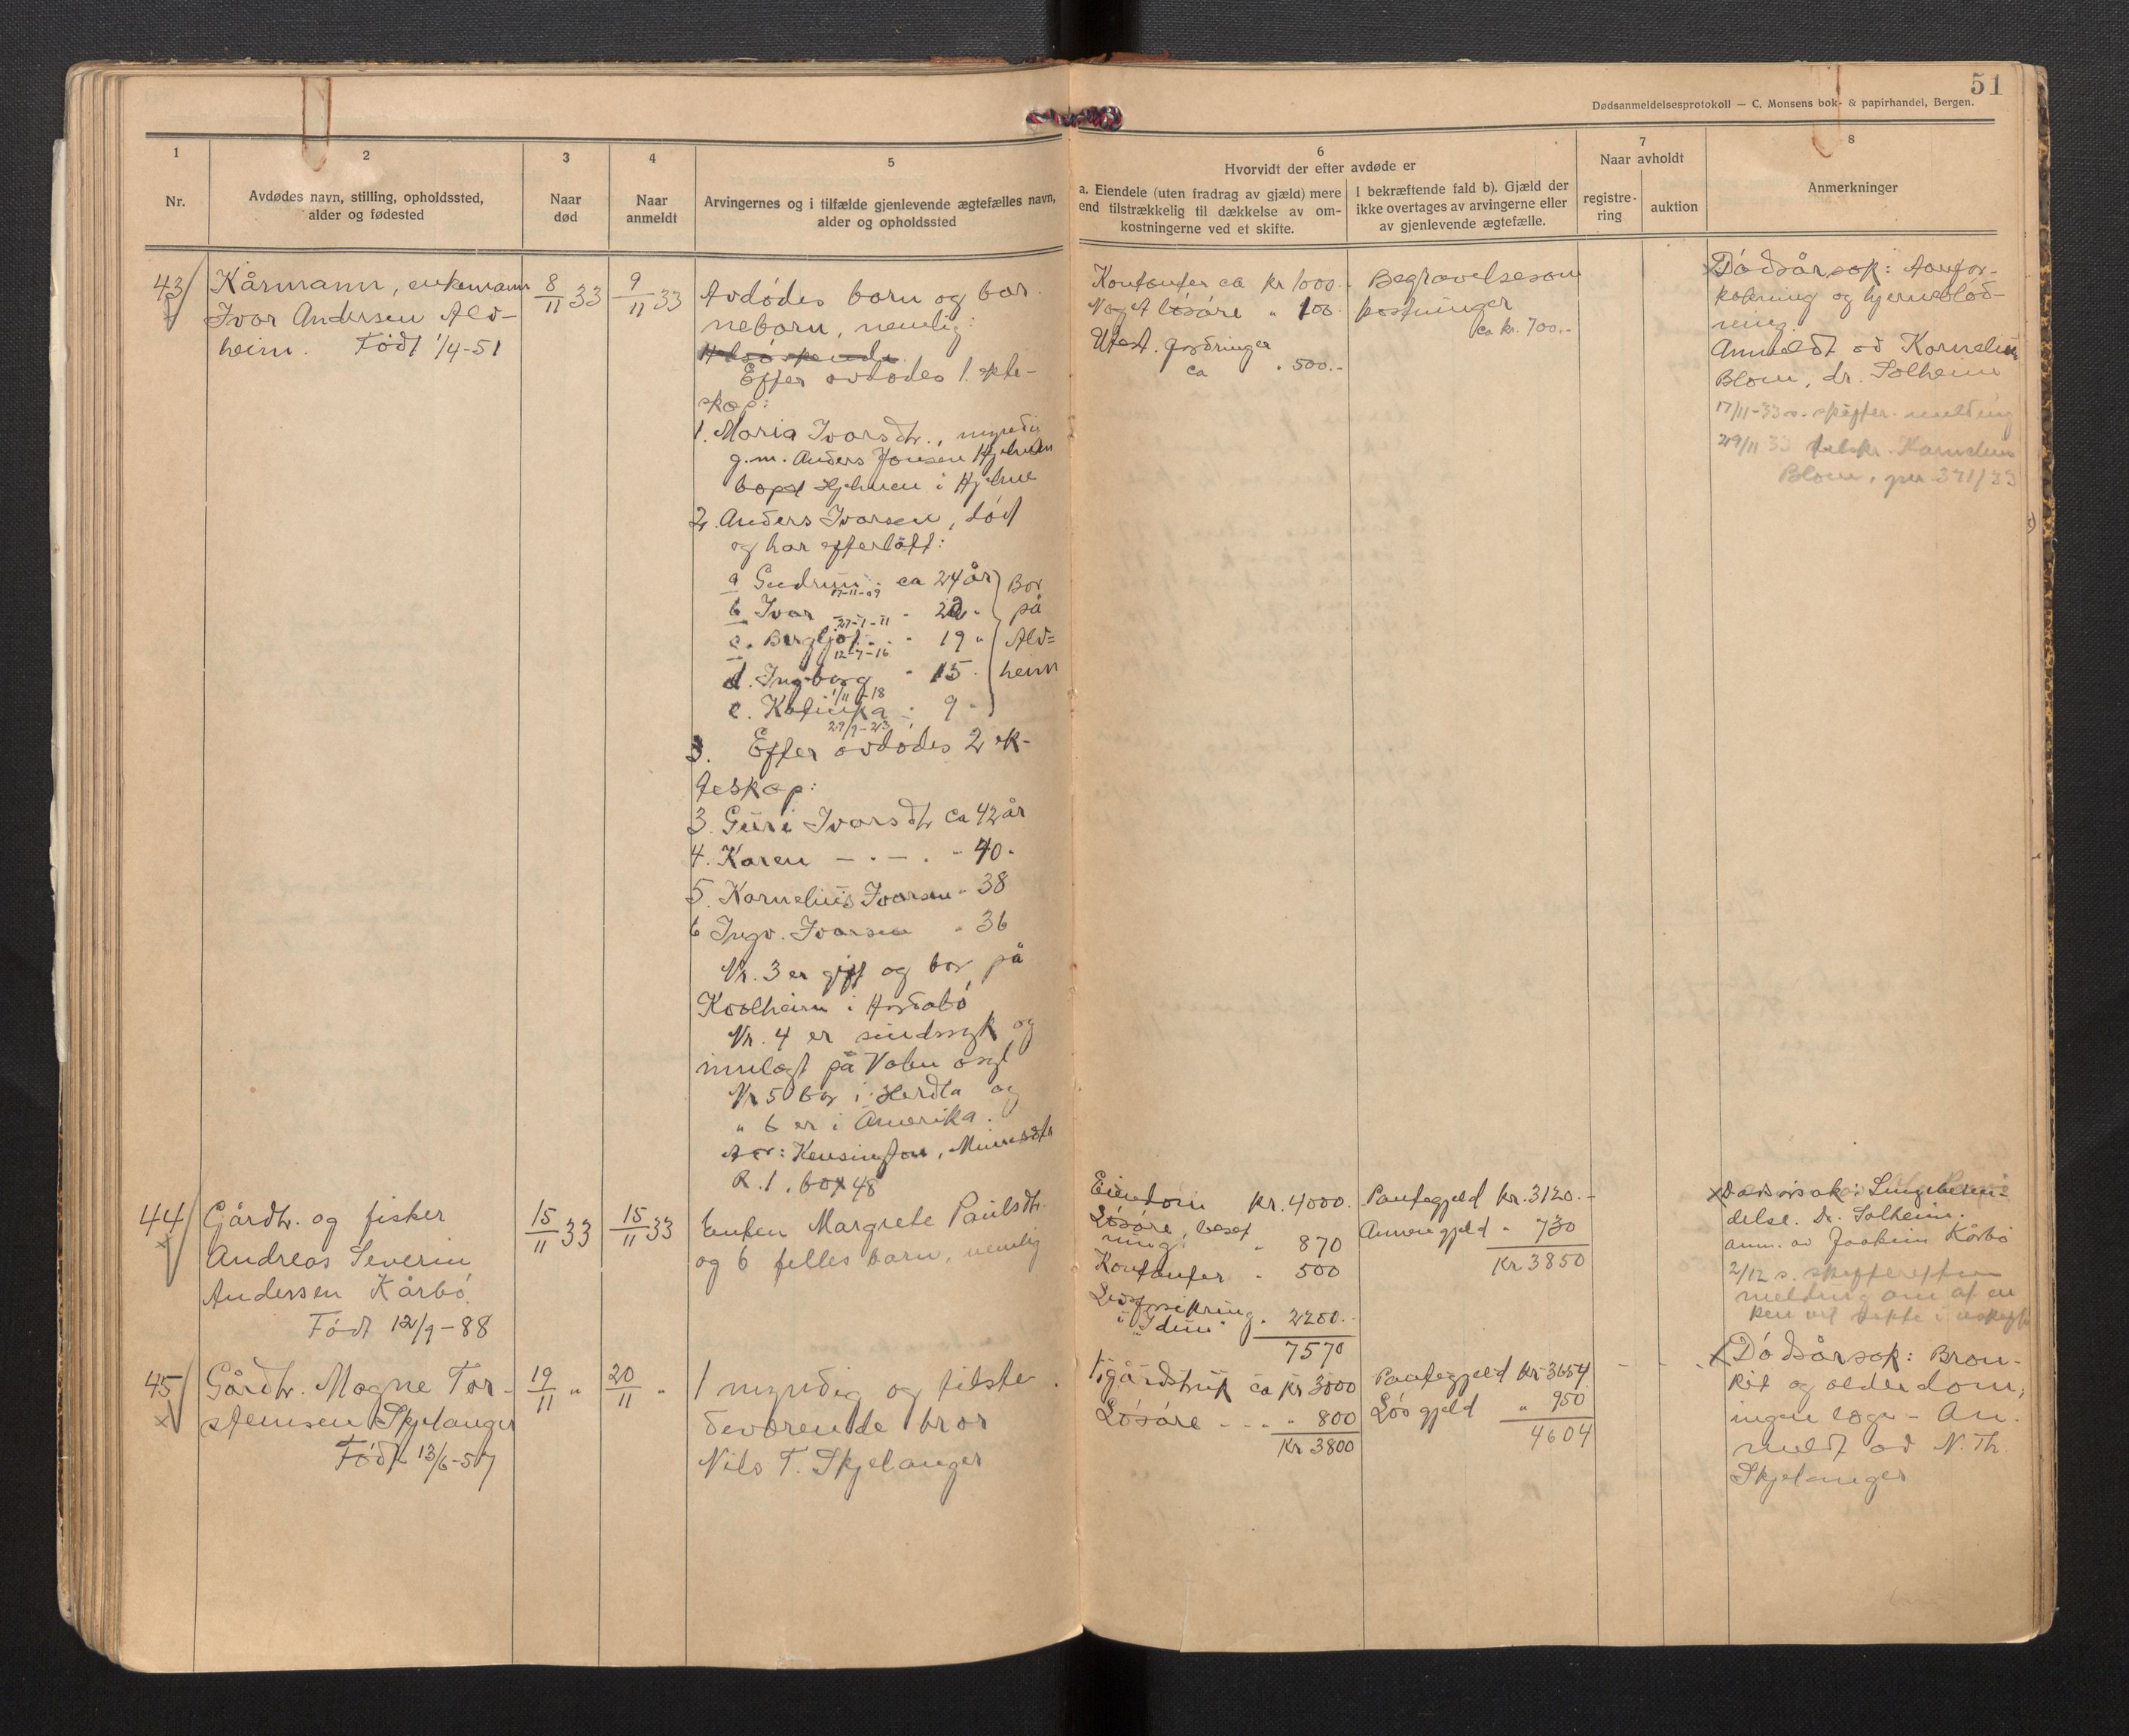 51
Dødsanmeldelsesprotokoll — C. Monsens bok- & papirhandel, Bergen.
1
Nr.
2
Avdødes navn, stilling, opholdssted,
alder og fødested
3
Naar
død
4
Naar
anmeldt
5
Arvingernes og i tilfælde gjenlevende ægtefælles navn,
alder og opholdssted
6
Hvorvidt der efter avdøde er
a. Eiendele (uten fradrag av gjæld) mere
end tilstrækkelig til dækkelse av om-
kostningerne ved et skifte.
I bekræftende fald b). Gjæld der
ikke overtages av arvingerne eller
av gjenlevende ægtefælle.
7
Naar avholdt
registre-
ring
auktion
8
Anmerkninger
43
Kårmann, enkemann
Ivar Andersen Alv-
heim. Født 1/4-51
8/11 33
9/11 33
Avdødes barn og bar-
neborn, nemlig:
Efter avdødes 1. ekte-
skap:
1. Maria Ivarsdtr., myndig
g.m. Anders Jonsen Hjelmen
bopd Hjelmen i Hjelme
2. Anders Ivarsen, død
og har efterlatt:
a Gudrun ca 24 år
17-11-09
b Ivar - 22 "
27-1-11
c. Bergljot - 19 "
12-7-16
d. Ingeborg - 15 "
1/11-18
e. Katinka - 9 "
29/9-23
Bor
på
Alv-
heim
3. Efter avdødes 2 ek-
teskap:
3. Guri Ivarsdtr ca 42 år
4. Karen — " — . - 40 -
5. Kornelius Ivarsen - 38
6 Ingv. Ivarsen - 36
Nr. 3 er gift og bor på
Kvalheim i Hordabø
Nr. 4 er sindssyk og
innlagt på Valen asyl
Nr 5 bor i Herdla og
" 6 er i Amerika.
Adr: Kensington, Minnesota
R.1. box 48
Kontanter ca kr 1000.-
Noget løsøre " 100.-
Utest. fordringer
ca " 500.-
Begravelsesom
kostninger
ca kr. 700.-
Dødsårsak: Aarefor-
kalkning og hjerneblød-
ning.
Anmeldt av Kornelius
Blom, dr. Solheim
17/11-33 s. skifter. melding
29/11 33 tilskr. Kornelius
Blom, jnr 371/33
44
Gårdbr. og fisker
Andreas Severin
Andersen Kårbø
Født 12/9-88
15/11 33
15/11 33
Enken Margrete Paulsdtr.
og 6 felles barn, nemlig
Eiendom kr. 4000.-
Løsøre, beset
ning: " 870
Kontanter " 500
Livsforsikring
i "Idun" " 2200.-
7570
Pantegjeld kr. 3120.-
Annen gjeld " 730
Kr 3850
Dødsårsak: Lungebeten-
delse. Dr. Solheim.
anm. av Joakim Kårbø
2/12 s. skifteretten
melding om at en
ken vil sitte i uskifte
45
Gårdbr. Magne Tor-
steinsen Skjelanger
Født 13/6-57
19/11 "
20/11 "
1 myndig og tilste-
deværende bror
Nils T. Skjelanger
1 gårdsbruk ca kr 3000
Løsøre - - - " 800
Kr 3800
Pantegjeld kr 3654
Løs gjeld " 950
4604
Dødsårsak: Bron-
kit og alderdom,
ingen læge - An-
meldt av N. Th.
Skjelanger